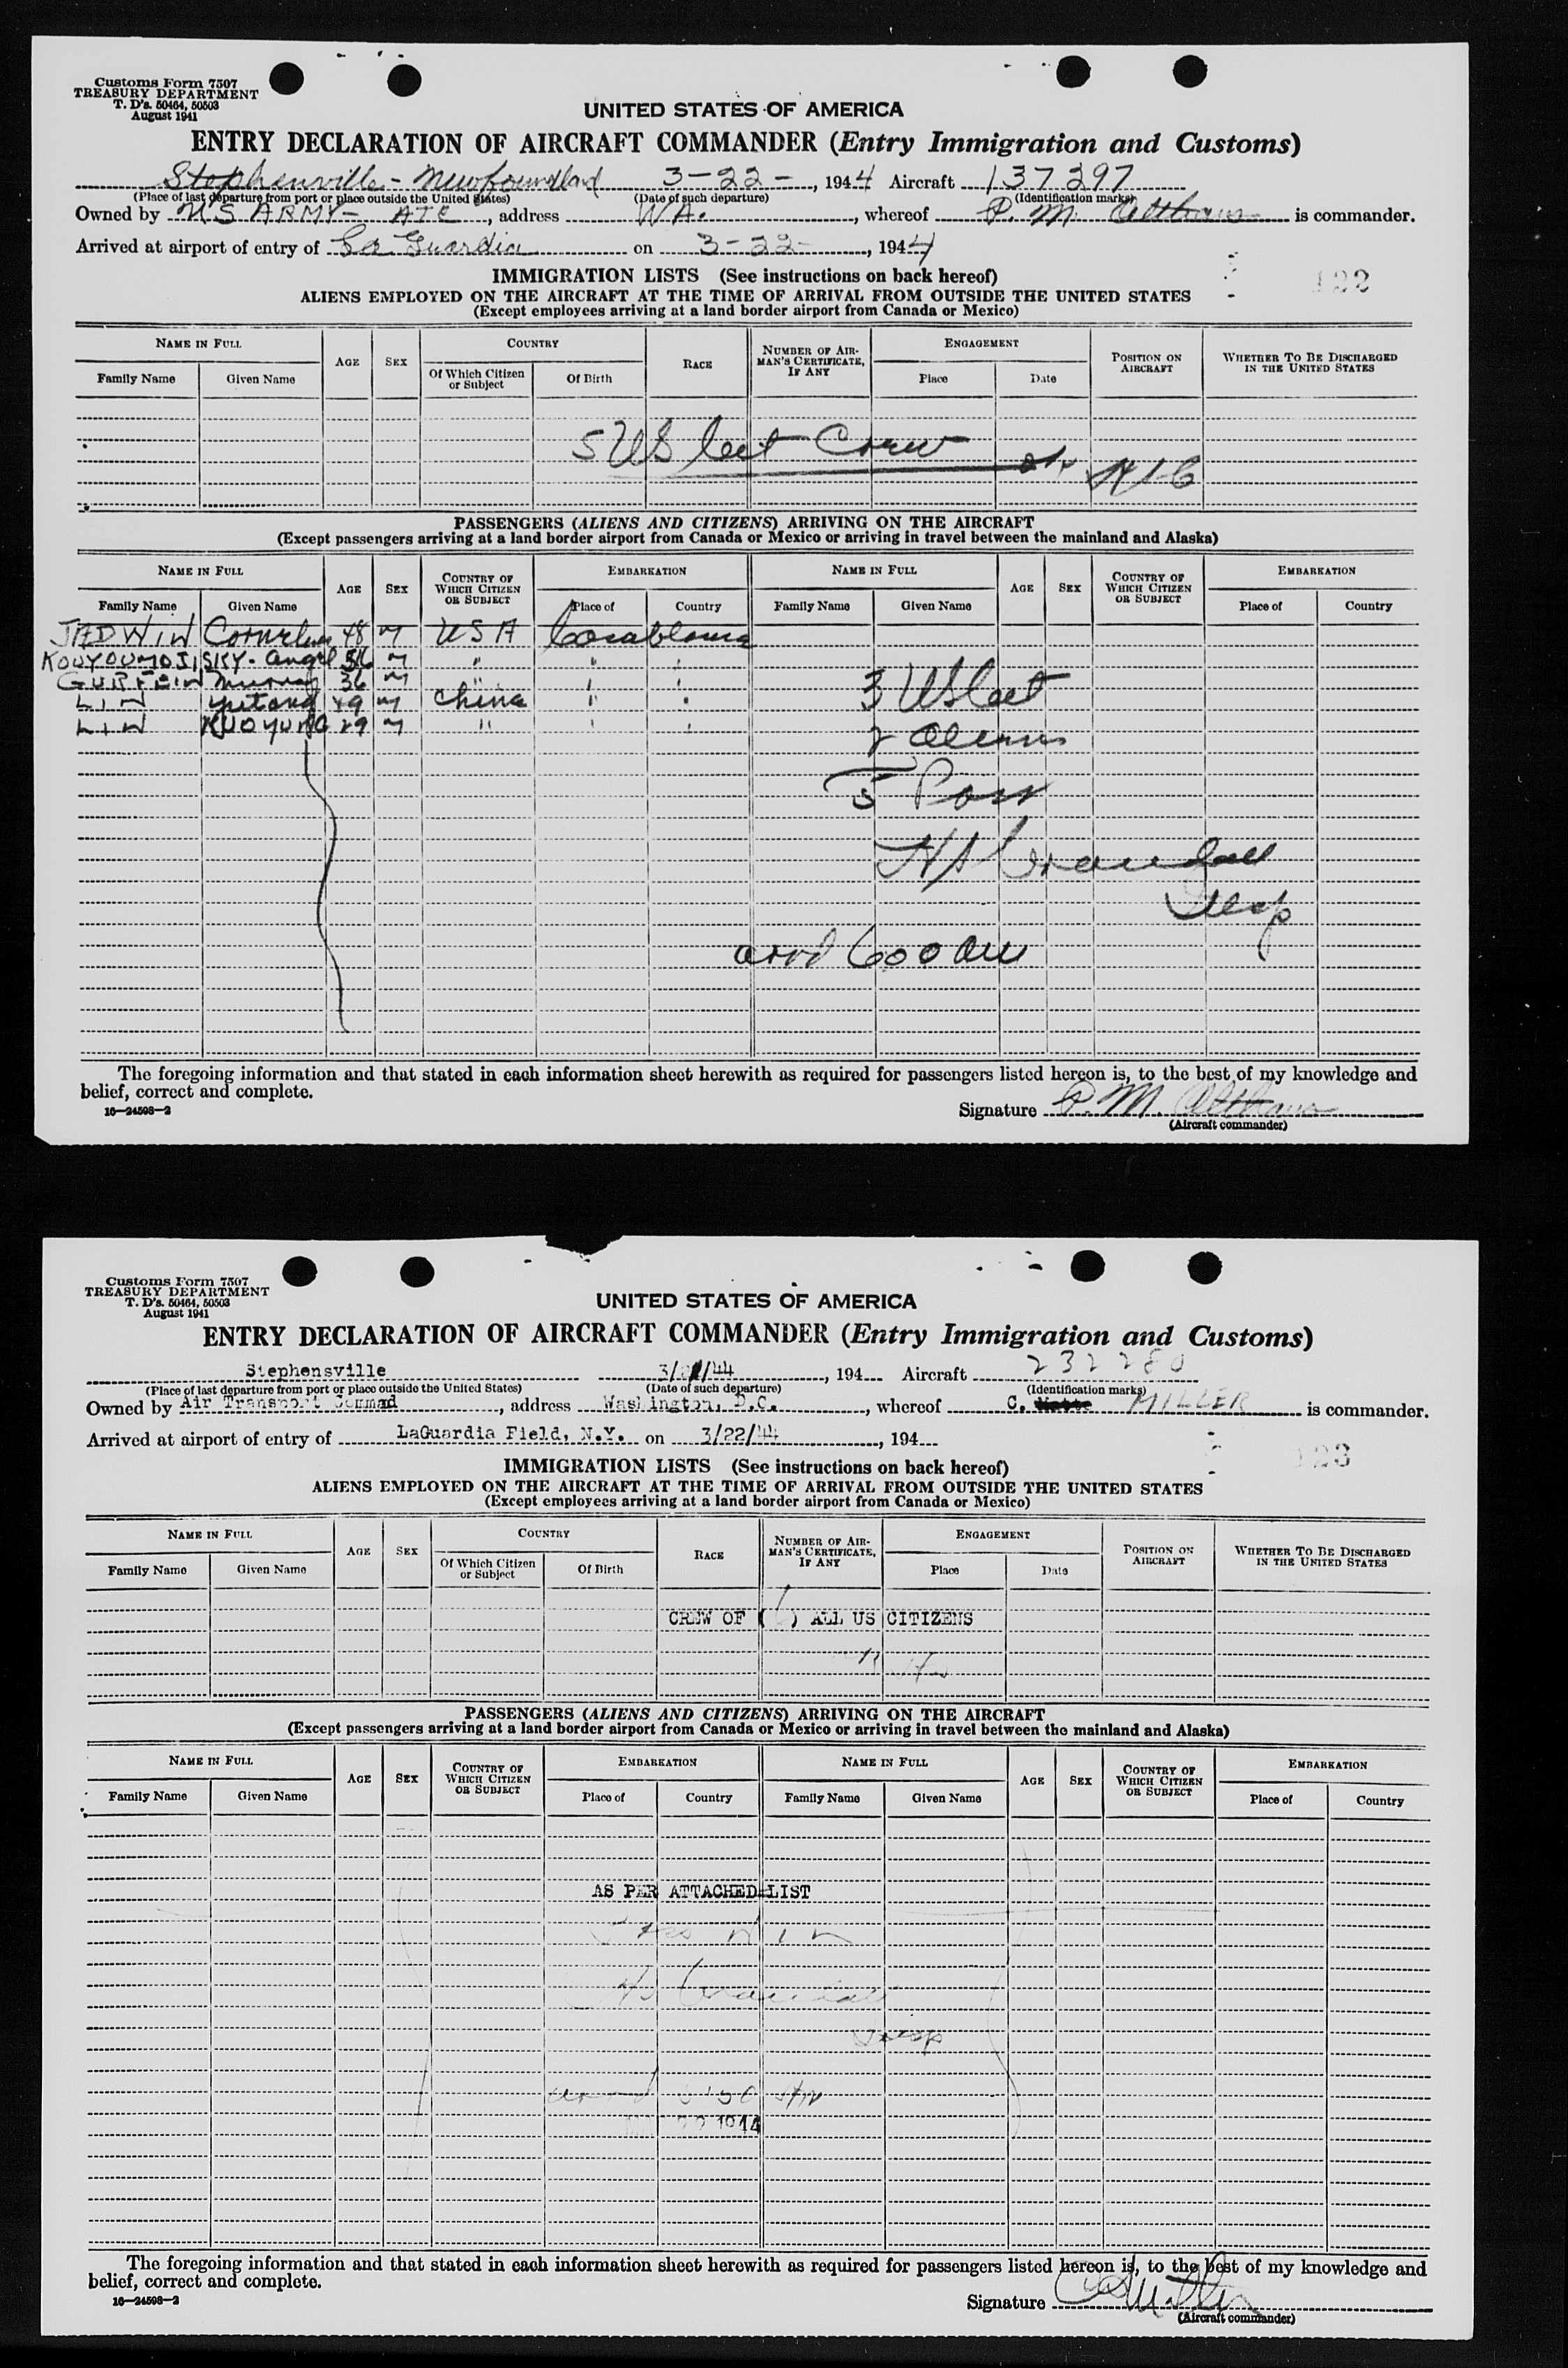 Customs Form 7507
TREASURY DEPARTMENT
T. D's. 50464, 50503
August 1941
UNITED STATES OF AMERICA
ENTRY DECLARATION OF AIRCRAFT COMMANDER (Entry Immigration and Customs)
Stephenville - Newfoundland 3-22-, 1944 Aircraft 137297
(Place of last departure from port or place outside the United States) (Date of such departure) (Identification marks)
Owned by US ARMY - ATC, address WA., whereof P. M. Althaus is commander.
Arrived at airport of entry of La Guardia on 3-22-, 1944
IMMIGRATION LISTS (See instructions on back hereof) 122
ALIENS EMPLOYED ON THE AIRCRAFT AT THE TIME OF ARRIVAL FROM OUTSIDE THE UNITED STATES
(Except employees arriving at a land border airport from Canada or Mexico)
NAME IN FULL AGE SEX COUNTRY RACE NUMBER OF AIRMAN'S CERTIFICATE, IF ANY ENGAGEMENT POSITION ON AIRCRAFT WHETHER TO BE DISCHARGED IN THE UNITED STATES
Family Name Given Name Of Which Citizen or Subject Of Birth Place Date
5 US Cit Crew
PASSENGERS (ALIENS AND CITIZENS) ARRIVING ON THE AIRCRAFT
(Except passengers arriving at a land border airport from Canada or Mexico or arriving in travel between the mainland and Alaska)
NAME IN FULL AGE SEX COUNTRY OF WHICH CITIZEN OR SUBJECT EMBARKATION NAME IN FULL AGE SEX COUNTRY OF WHICH CITIZEN OR SUBJECT EMBARKATION
Family Name Given Name Place of Country Family Name Given Name Place of Country
JADWIN Cornelius 48 M USA Casablanca
KOUYOUMDJISKY - Angel 56 M " " "
GURFEIN Murray 36 M " " "
LIN Yutang 49 M China " "
LIN KUOYUNG 29 M " " "
3 US Cit
2 Aliens
5 Pass
H S Crandall
Insp
arrd 600 AM
The foregoing information and that stated in each information sheet herewith as required for passengers listed hereon is, to the best of my knowledge and
belief, correct and complete.
16—24598-2
Signature P. M. Althaus
(Aircraft commander)
Customs Form 7507
TREASURY DEPARTMENT
T. D's. 50464, 50503
August 1941
UNITED STATES OF AMERICA
ENTRY DECLARATION OF AIRCRAFT COMMANDER (Entry Immigration and Customs)
Stephensville 3/21/44, 194 Aircraft 232280
(Place of last departure from port or place outside the United States) (Date of such departure) (Identification marks)
Owned by Air Transport Commad, address Washington, D.C., whereof C. MILLER is commander.
Arrived at airport of entry of LaGuardia Field, N.Y. on 3/22/44, 194
IMMIGRATION LISTS (See instructions on back hereof) 123
ALIENS EMPLOYED ON THE AIRCRAFT AT THE TIME OF ARRIVAL FROM OUTSIDE THE UNITED STATES
(Except employees arriving at a land border airport from Canada or Mexico)
NAME IN FULL AGE SEX COUNTRY RACE NUMBER OF AIRMAN'S CERTIFICATE, IF ANY ENGAGEMENT POSITION ON AIRCRAFT WHETHER TO BE DISCHARGED IN THE UNITED STATES
Family Name Given Name Of Which Citizen or Subject Of Birth Place Date
CREW OF (6) ALL US CITIZENS
PASSENGERS (ALIENS AND CITIZENS) ARRIVING ON THE AIRCRAFT
(Except passengers arriving at a land border airport from Canada or Mexico or arriving in travel between the mainland and Alaska)
NAME IN FULL AGE SEX COUNTRY OF WHICH CITIZEN OR SUBJECT EMBARKATION NAME IN FULL AGE SEX COUNTRY OF WHICH CITIZEN OR SUBJECT EMBARKATION
Family Name Given Name Place of Country Family Name Given Name Place of Country
AS PER ATTACHED LIST
Crandall
Insp
arrd
22 1944
The foregoing information and that stated in each information sheet herewith as required for passengers listed hereon is, to the best of my knowledge and
belief, correct and complete.
16—24598-2
Signature C Miller
(Aircraft commander)